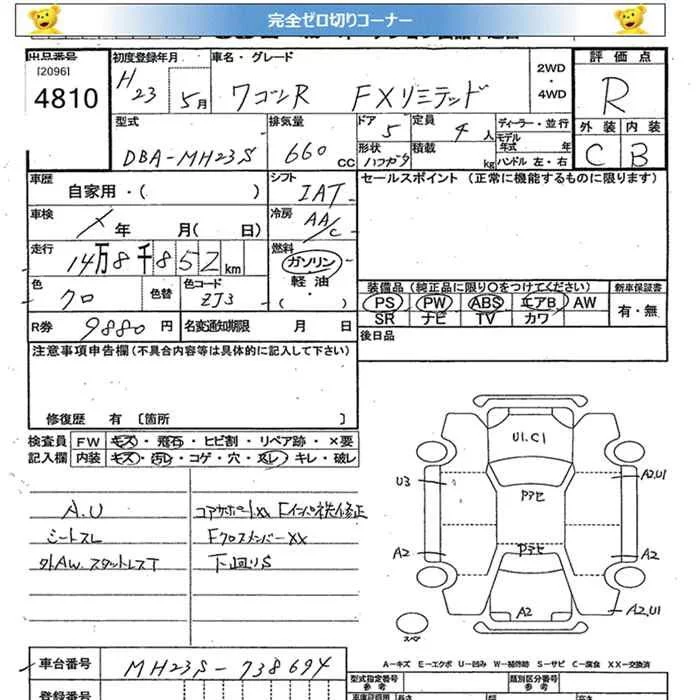 完全ゼロ切りコーナー
出品番号 初度登録年月 車名・グレード 2WD・4WD 評価点
[2096]
4810 H23 5月 ワゴンR FXリミテッド R
型式 排気量 ドア 定員 ディーラー・並行 外装 内装
DBA-MH23S 660cc 5 4人 モデル年式 年
形状 積載 ハンドル 左・右
ハッチバック kg C B
車歴 シフト セールスポイント (正常に機能するものに限ります)
自家用・( ) IAT
車検 冷房
年 月( 日) AA/C
走行 燃料
14万8千852km ガソリン・軽油・( )
色 色替 色コード 装備品(純正品に限り○をつけてください) 新車保証書
クロ ZJ3 PS PW ABS エアB AW 有・無
SR ナビ TV カワ
R券 9880円 名変通知期限 月 日 後日品
注意事項申告欄(不具合内容等は具体的に記入して下さい)
修復歴 有 [箇所 ]
検査員 FW キズ・飛石・ヒビ割・リペア跡・×要
記入欄 内装 キズ・汚れ・コゲ・穴・スレ・キレ・破レ
A.U コアサポートXX Fインパネ状修正
シートスレ FクロスメンバーXX
外AW.スタットレスT 下回りS
U1.C1
U3 Pアセ A2,U1
Pアセ
A2 A2
A2 A2,U1
スペア
A-キズ E-エクボ U-凹み W-補修跡 S-サビ C-腐食 XX-交換済
車台番号 MH23S-738694
型式指定番号 参考 類別区分番号 参考
登録番号